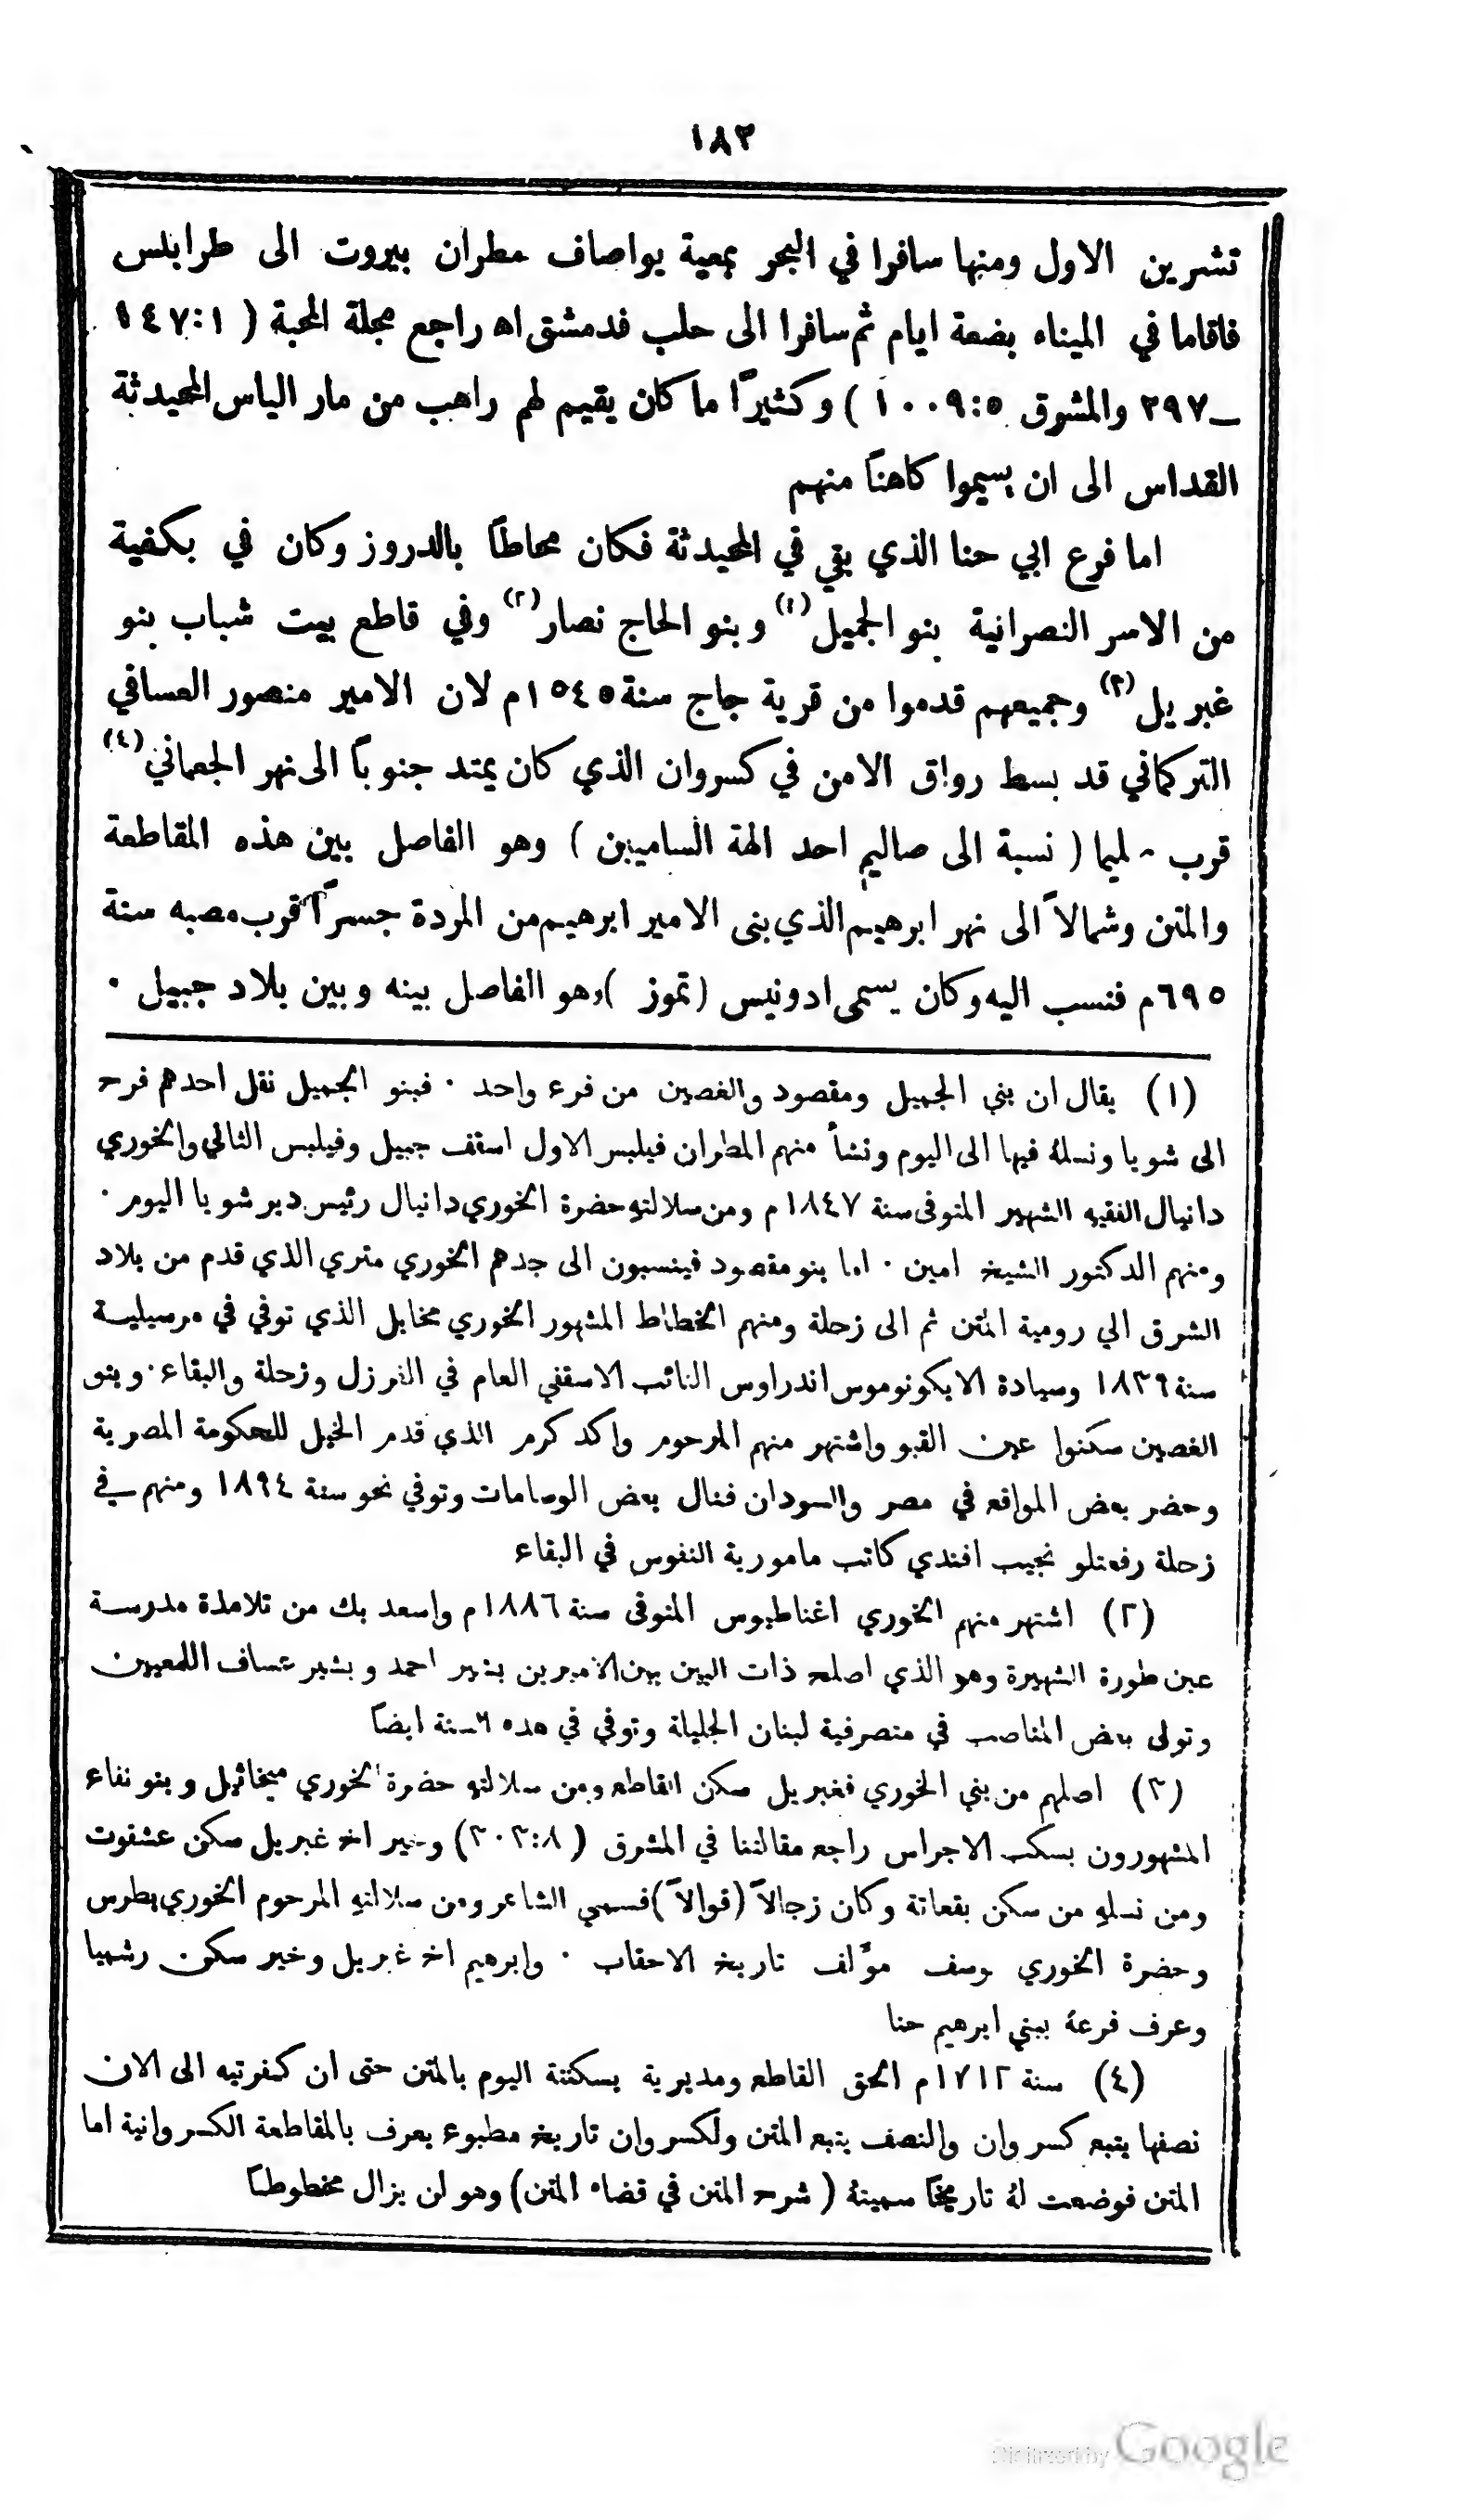 ١٨٣
تشرين الاول ومنها سافرا في البحر بمعية يواصاف مطران بيروت الى طرابلس
فاقاما في الميناء بضعة ايام ثم سافرا الى حلب فدمشق اه راجع مجلة المحبة ( ١٤٧:١
ــ٣٩٧ والمشرق ١٠٠٩:٥ ) وكثيرًا ما كان يقيم لهم راهب من مار الياس المحيدثة
القداس الى ان يسيموا كاهنًا منهم
اما فرع ابي حنا الذي بقي في المحيدثة فكان محاطًا بالدروز وكان في بكفية
من الاسر النصرانية بنو الجميل(١) وبنو الحاج نصار(٢) وفي قاطع بيت شباب بنو
غبريل(٣) وجميعهم قدموا من قرية جاج سنة ١٥٤٥م لان الامير منصور العسافي
التركماني قد بسط رواق الامن في كسروان الذي كان يمتد جنوبًا الى نهر الجعماني(٤)
قرب ليما ( نسبة الى صاليم احد الهة الساميين ) وهو الفاصل بين هذه المقاطعة
والمتن وشمالاً الى نهر ابرهيم الذي بنى الامير ابرهيم من المردة جسرًا قرب مصبه سنة
٦٩٥م فنسب اليه وكان يسمى ادونيس (تموز ) وهو الفاصل بينه وبين بلاد جبيل ٠
(١) يقال ان بني الجميل ومقصود والغصين من فرع واحد ٠ فبنو الجميل نقل احدهم فرح
الى شويا ونسلهُ فيها الى اليوم ونشأ منهم المطران فيلبس الاول اسقف جبيل وفيلبس الثاني والخوري
دانيال الفقيه الشهير المتوفى سنة ١٨٤٧ م ومن سلالتهِ حضرة الخوري دانيال رئيس دير شويا اليوم ٠
ومنهم الدكتور الشيخ امين ٠ اما بنو مقصود فينسبون الى جدهم الخوري متري الذي قدم من بلاد
الشرق الى رومية المتن ثم الى زحلة ومنهم الخطاط المشهور الخوري مخايل الذي توفي في مرسيلية
سنة ١٨٣٩ وسيادة الايكونوموس اندراوس النائب الاسقفي العام في الفرزل وزحلة والبقاع ٠ وبنو
الغصين سكنوا عين القبو واشتهر منهم المرحوم واكد كرم الذي قدم الخيل للحكومة المصرية
وحضر بعض المواقع في مصر والسودان فنال بعض الوسامات وتوفي نحو سنة ١٨٩٤ ومنهم في
زحلة رفعتلو نجيب افندي كاتب مامورية النفوس في البقاع
(٢) اشتهر منهم الخوري اغناطيوس المتوفى سنة ١٨٨٦م واسعد بك من تلامذة مدرسة
عين طورة الشهيرة وهو الذي اصلح ذات البين بين الاميرين بشير احمد وبشير عساف اللمعيين
وتولى بعض المناصب في متصرفية لبنان الجليلة وتوفي في هذه السنة ايضًا
(٣) اصلهم من بني الخوري فغبريل سكن القاطع ومن سلالتهِ حضرة الخوري ميخائيل وبنو نفاع
المشهورون بسكب الاجراس راجع مقالتنا في المشرق ( ٣٠٣:٨) وخير اخ غبريل سكن عشقوت
ومن نسلهِ من سكن بقعاتة وكان زجالاً (قوالاً )فسمي الشاعر ومن سلالتهِ المرحوم الخوري بطرس
وحضرة الخوري يوسف مؤلف تاريخ الاحقاب ٠ وابرهيم اخ غبريل وخير سكن رشميا
وعرف فرعهُ ببني ابرهيم حنا
(٤) سنة ١٧١٢م الحق القاطع ومديرية بسكنتة اليوم بالمتن حتى ان كفرتيه الى الان
نصفها يتبع كسروان والنصف يتبع المتن ولكسروان تاريخ مطبوع يعرف بالمقاطعة الكسروانية اما
المتن فوضعت لهُ تاريخًا سميتهُ ( شرح المتن في قضاء المتن) وهو لن يزال مخطوطًا
Digitized by Google